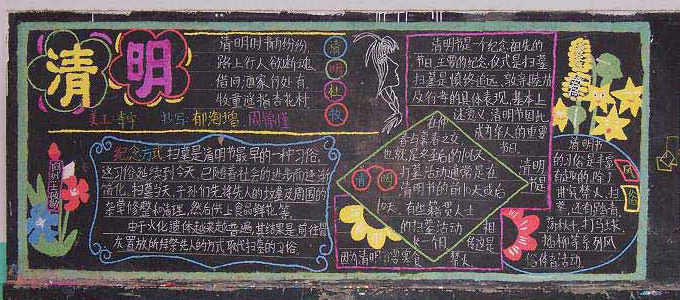 清明
清明时节雨纷纷,
路上行人欲断魂。
借问酒家何处有,
牧童遥指杏花村
清
明
杜
牧
美工:李宁 抄写:郁湘澄 周锦瑾
纪念方式 扫墓是清明节最早的一种习俗,
这习俗延续到今天,已随着社会的进步而逐渐
简化。扫墓当天,子孙们先将先人的坟墓及周围的
杂草修整和清理,然后供上食品鲜花等。
由于火化遗体越来越普遍,其结果是前往骨
灰置放地拜祭先人的方式取代扫墓的习俗。
清明节是一个纪念祖先的
节日,主要的纪念仪式是扫墓,
扫墓是慎终追远、敦亲睦族
及行孝的具体表现,基本上
述意义,清明节因此
成为华人的重要
节日。
春与暮春之交,
也就是冬至后的106天。
扫墓活动通常是在
清明节的前10天或后
10天。有些籍贯人士
的扫墓活动
长
一个月。
清明
清明
节是
相
传
禁火
清明节
的习俗是丰富
有趣的,除了
讲究禁火、扫
墓,还有踏青、
荡秋千、打马球、
插柳等系列风
俗体育活动。
风
俗